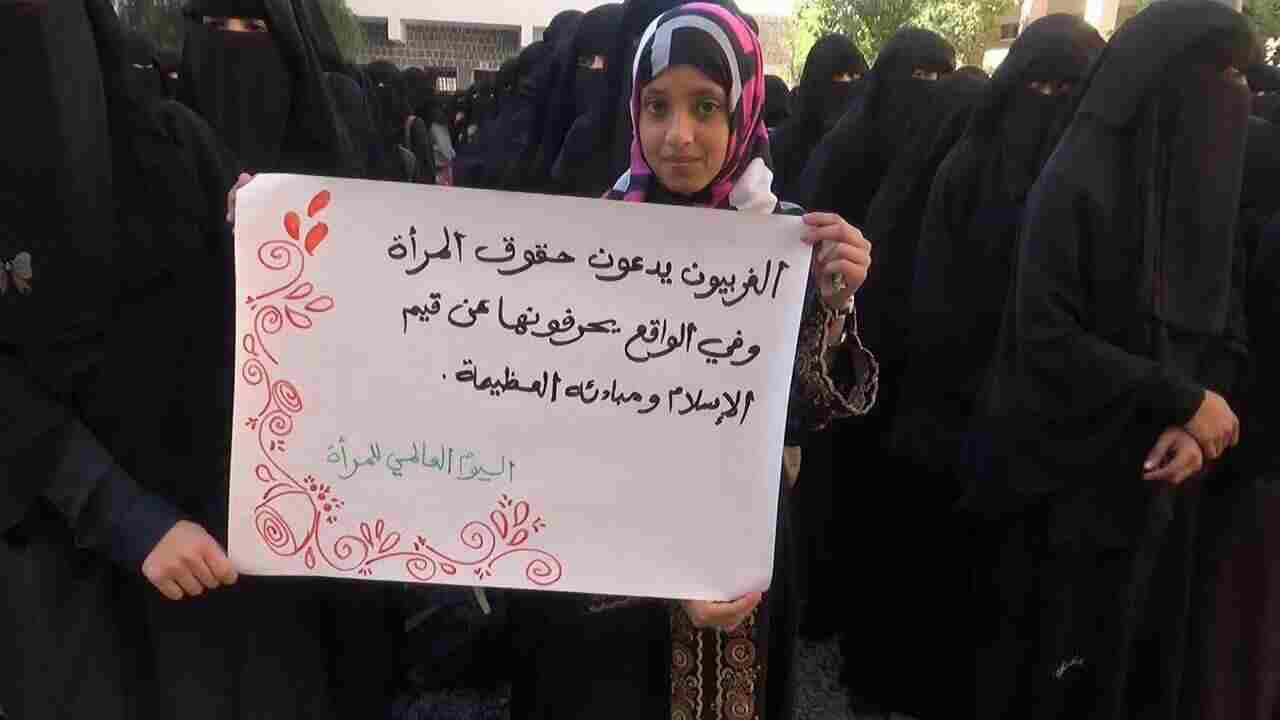 الغربيون يدعون حقوق المرأة
وفي الواقع يحرفونها عن قيم
الإسلام ومبادئه العظيمة .
اليوم العالمي للمرأة